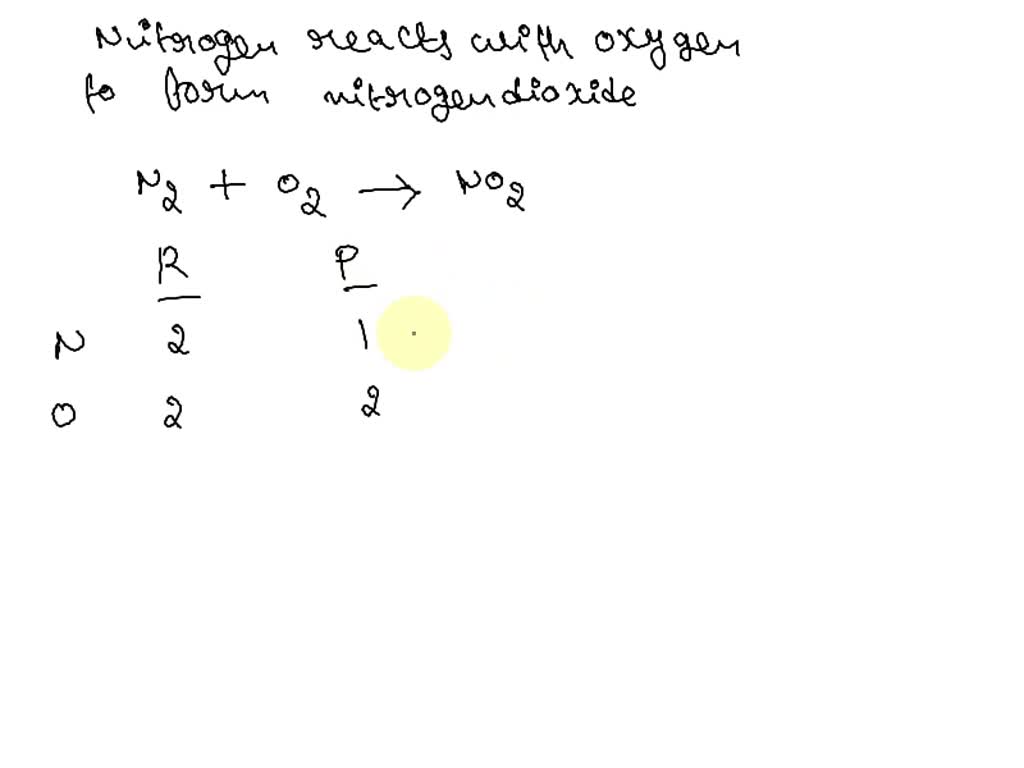 Nitrogen reacts with oxygen
to form nitrogendioxide
N₂ + O₂ → NO₂
R P
N 2 1
O 2 2